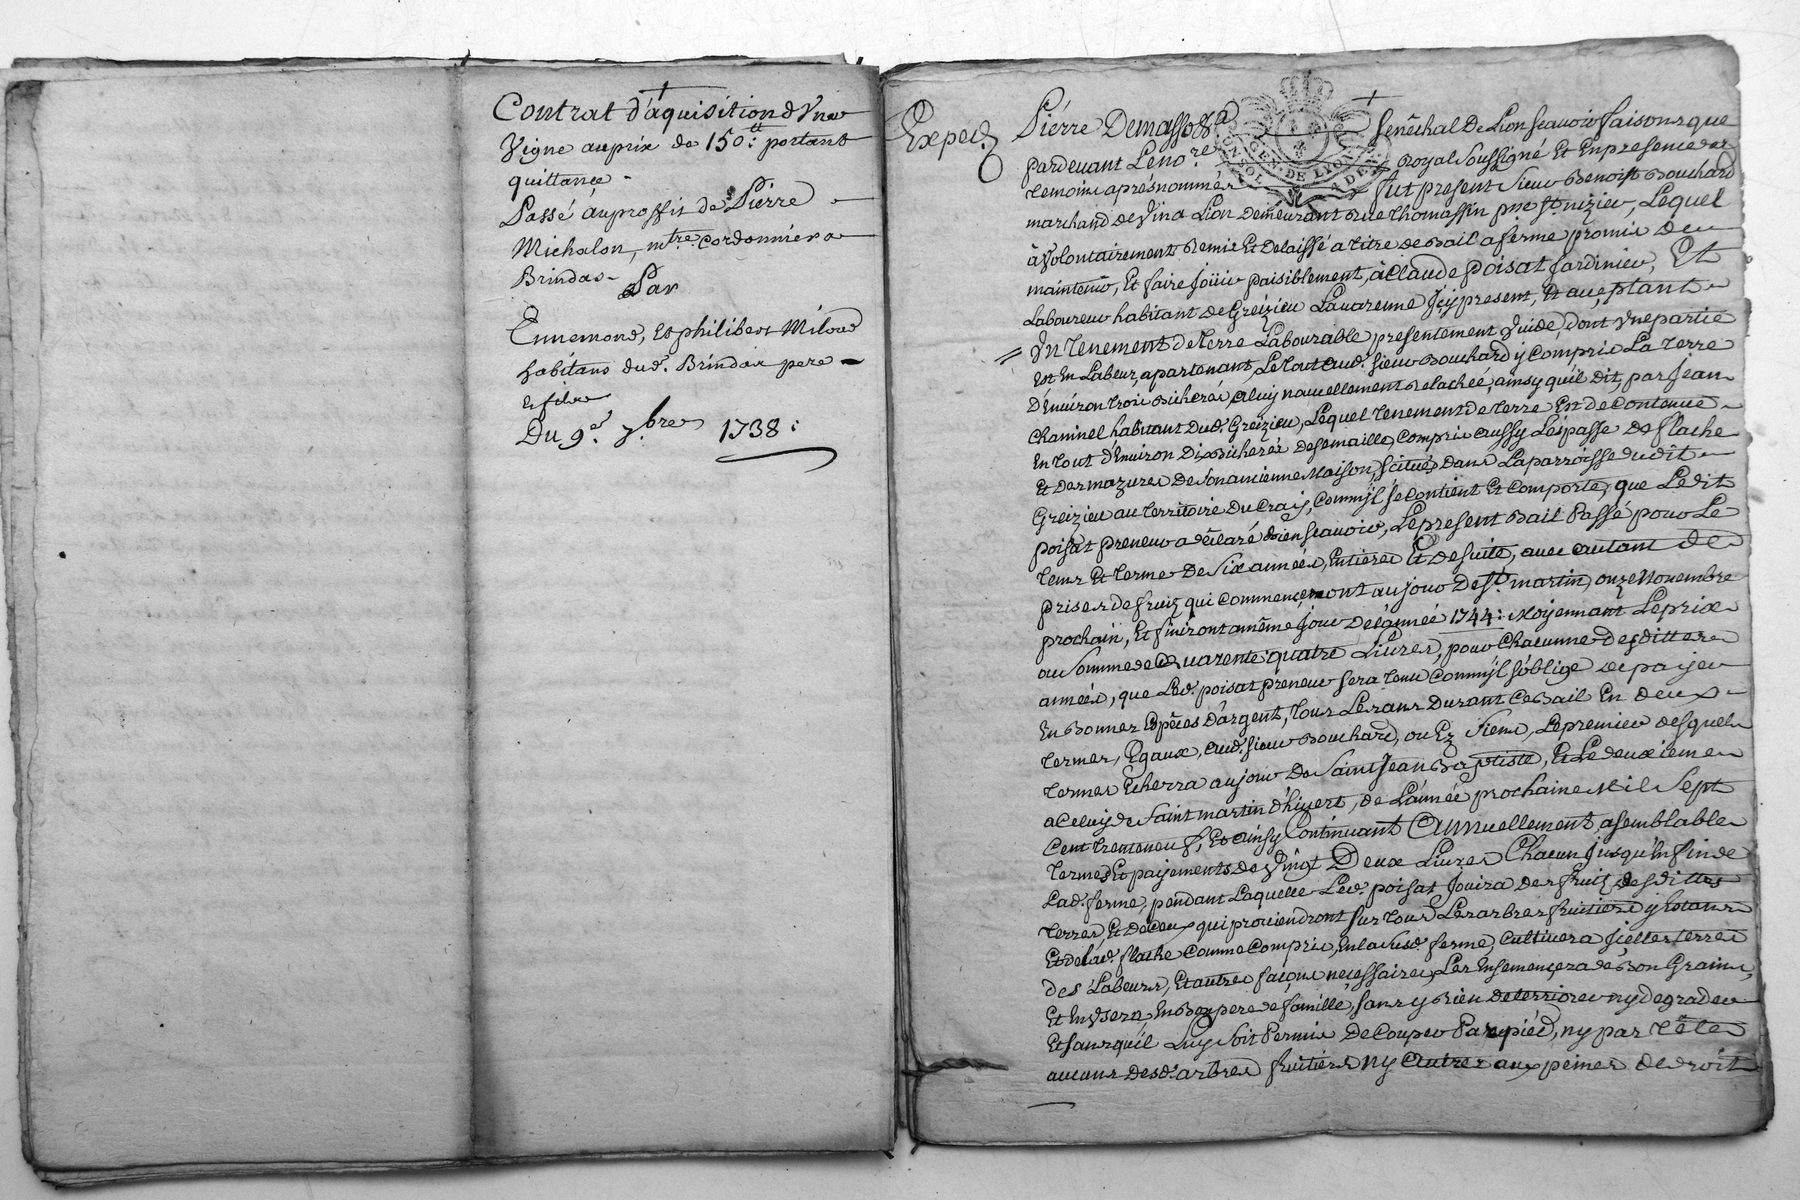 Contrat d'aquisition d'Une
Vigne au prix de 150.tt portant
quittance
Passé au proffit de Pierre
Michalon, mtre. cordonnier a
Brindas
Par
Ennemond, et philibert Milou
habitans dud. Brindas pere
et fils
Du 9e. 7bre 1738:
Exped.
Pierre Demasso &a Senêchal De Lion scavoir faisons que
pardevant Le nore. Royal Soussigné Et En presence des
temoins aprés nommés fut present Sieur Benoist Bouchard
marchand de Vin a Lion Demeurant Rue Thomassin psse. St. nizier, Lequel
à Volontairement Remis Et Delaissé a titre de Bail a ferme promis de
maintenir, Et faire Joüir paisiblement, à Claude poisat Jardinier, Et
Laboureur habitant de Greizieu Lavarenne Jcy present, Et aceptant
Vn tenement de terre Labourable presentement Vuide, dont Vne partie
est En Labeur, apartenant Le tout aud. sieur Bouchard y Compris La terre
D'Environ trois Bicherés, a luy nouvellement Relachée, ainsy qu'il dit, par Jean
Chaninel habitant Dud. Greizieu, Lequel tenement de terre Est de Contenue
En tout d'Environ Dix Bicherés de Semaille, Compris aussy L'espasse de flache
Et des mazures de Son ancienne Maison, Scitués Dans La parroisse dudit
Greizieu au territoire Du Crais, Comm'jl se Contient Et Comporte, que Ledit
poisat preneur a déclaré bien scavoir, Le present Bail Passé pour Le
tems Et terme De Six années, Entieres Et de suite, avec autant de
prises de fruiz qui commenceront au jour De St. martin, onze Novembre
prochain, Et finiront a même jour De l'année 1744: Moyennant Le prix
ou Somme de Quarente quatre Livres, pour Chacunne desdittes
années, que Led. poisat preneur sera tenu Comm'jl s'oblige de payer
En Bonnes Espêces d'argent, tous Les ans Durant Ce Bail En deux
termes, Egaux, aud. sieur Bouchard, ou Ez Siens, Le premier desquels
termes Echerra au jour De Saint Jean Baptiste, Et Le deuxieme
a Celuy de Saint martin d'hivert, de L'année prochaine Mil Sept
Cent trente neuf, Et ainsy Continuant Annuellement, a semblables
termes Et payements de Vingt Deux Livres Chacun Jusqu'En fin de
Lad. ferme, pendant Laquelle Led. poisat Jouira des fruiz desdittes
terres Et de Ceux qui proviendront sur tous Les arbres fruitiers y Estans
Et de Lad. flache Comme Compris, En la Susd. ferme, Cultivera Jcelles terres
des Labeurs, Et autres façons necessaires, Les Ensemencera de Bon Grains,
Et En Vsera En Bon pere de famille, sans y Rien deterriorer ny degrader
Et sans qu'il Luy Soit Permis De Couper Par pied, ny par tête
aucuns Desd. arbres fruitiers ny Autres aux peines de droit